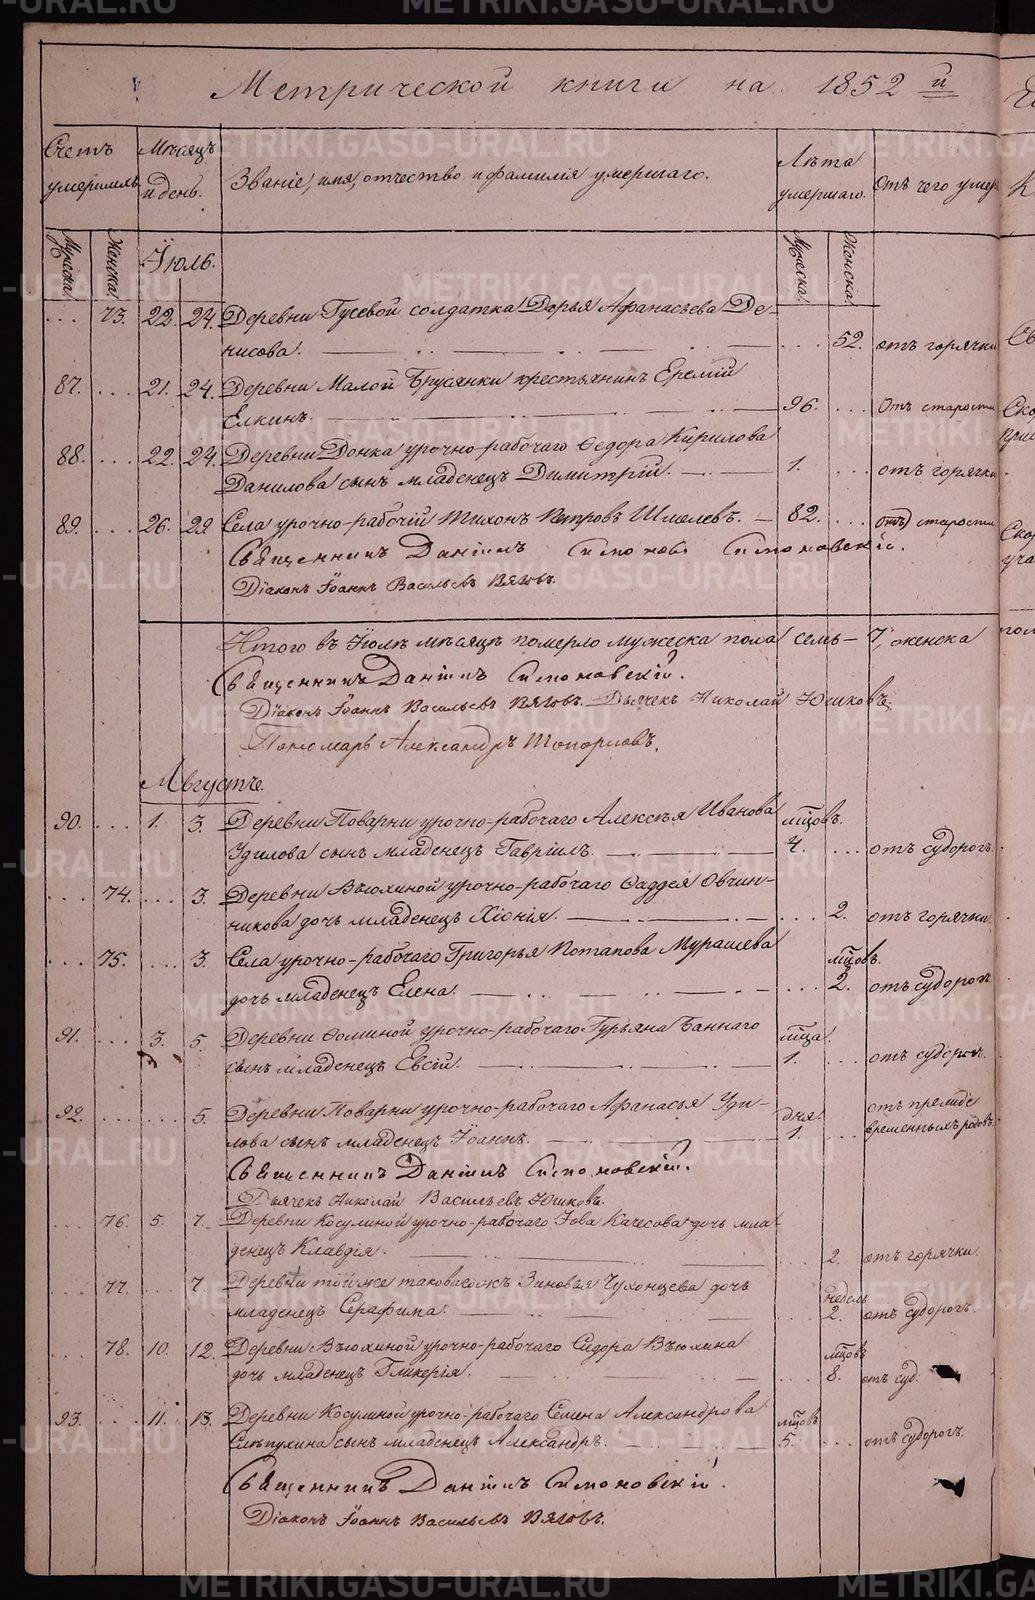 Метрической книги на 1852 й
Счетъ умершихъ.
Мѣсяцъ и день.
Званіе, имя, отчество и фамилія умершаго.
Лѣта умершаго.
Отъ чего умер
Мужеска. Женска. Іюль. Мужеска. Женска.
... 73. 22. 24. Деревни Гусевой солдатка Дарья Афанасьева Де-
нисова. ... 52. отъ горячки
87. ... 21. 24. Деревни Малой Брусянки крестьянинъ Еремій
Елкинъ. 96. ... Отъ старости
88. ... 22. 24. Деревни Донка урочно-рабочаго Ѳедора Кирилова
Данилова сынъ младенецъ Димитрій. 1. ... отъ горячки
89. ... 26. 29. Села урочно-рабочій Тихонъ Петровъ Шмелевъ. 82. ... отъ старости
Священникъ Даніилъ Симоновскій.
Діаконъ Іоаннъ Васильевъ Вяговъ.
Итого въ Іюлѣ мѣсяцѣ померло мужеска пола семь - 7, женска
Священникъ Даніилъ Симоновскій.
Діаконъ Іоаннъ Васильевъ Вяговъ. Дьячекъ Николай Юшковъ.
Пономарь Александръ Топорковъ.
Августъ.
90. ... 1. 3. Деревни Поварни урочно-рабочаго Алексѣя Иванова мцовъ.
Удилова сынъ младенецъ Гавріилъ. 4. ... отъ судорогъ.
... 74. ... 3. Деревни Вьюхиной урочно-рабочаго Ѳаддея Овчин-
никова дочь младенецъ Хіонія. ... 2. отъ горячки.
... 75. ... 3. Села урочно-рабочаго Григорья Потапова Мурашева мцовъ.
дочь младенецъ Елена. ... 2. отъ судорогъ
91. ... 3. 5. Деревни Ѳоминой урочно-рабочаго Гурьяна Баннаго мца.
сынъ младенецъ Евсій. 1. ... отъ судорогъ.
92. ... ... 5. Деревни Поварни урочно-рабочаго Афанасья Уди- дня. отъ прежде
лова сынъ младенецъ Іоаннъ. 1. ... временныхъ родовъ.
Священникъ Даніилъ Симоновскій.
Дьячекъ Николай Васильевъ Юшковъ.
... 76. 5. 7. Деревни Косулиной урочно-рабочаго Іова Качесова дочь мла-
денецъ Клавдія. 2. отъ горячки.
... 77. 7. Деревни той же таковагожъ Зиновья Чухонцева дочь недѣль
младенецъ Серафима. ... 2. отъ судорогъ.
... 78. 10. 12. Деревни Вьюхиной урочно-рабочаго Сидора Вьюхина мцовъ
дочь младенецъ Гликерія. ... 8. отъ суд.
93. ... 11. 13. Деревни Косулиной урочно-рабочаго Семена Александрова мцовъ
Слѣпухина сынъ младенецъ Александръ. 5. ... отъ судорогъ.
Священникъ Даніилъ Симоновскій.
Діаконъ Іоаннъ Васильевъ Вяговъ.
METRIKI.GASO-URAL.RU